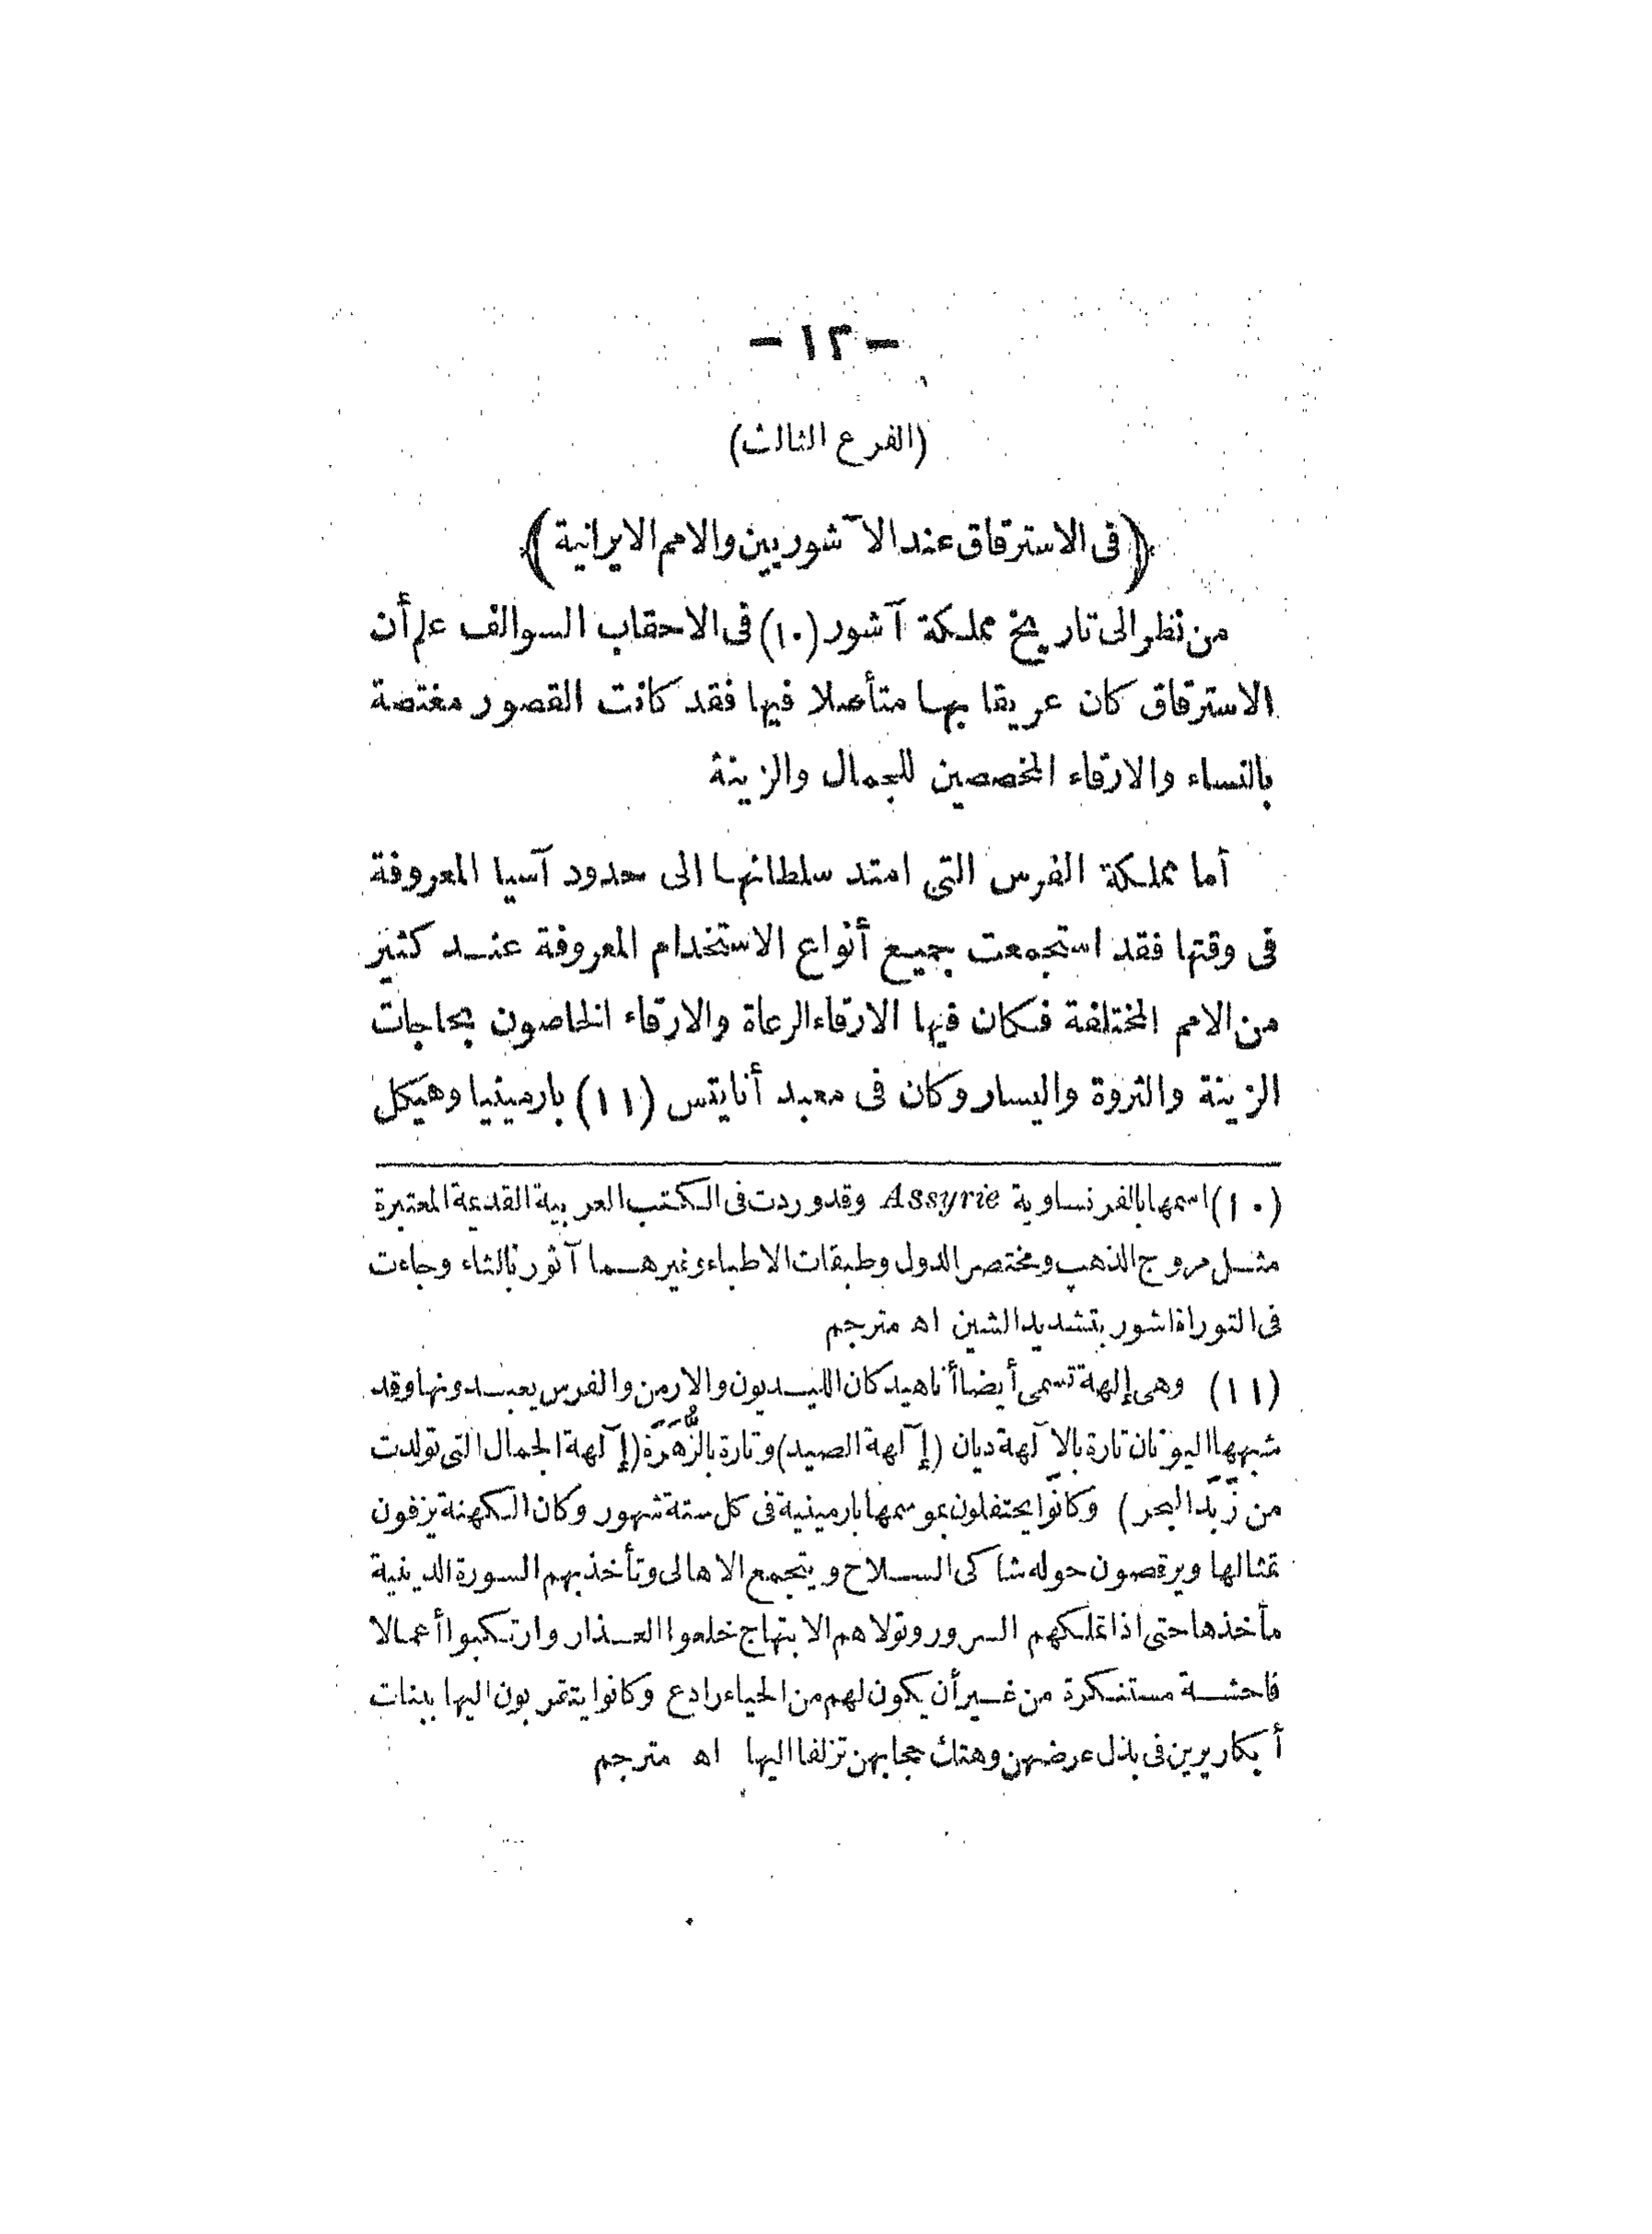 - ١٣ -
(الفرع الثالث)
(فى الاسترقاق عند الآشوريين والامم الايرانية)
من نظر الى تاريخ مملكة آشور (١٠) فى الاحقاب السوالف علم أن
الاسترقاق كان عريقا بها متأصلا فيها فقد كانت القصور مغتصة
بالنساء والارقاء المخصصين للجمال والزينة
أما مملكة الفرس التى امتد سلطانها الى حدود آسيا المعروفة
فى وقتها فقد استجمعت بجميع أنواع الاستخدام المعروفة عند كثير
من الامم المختلفة فكان فيها الارقاء الرعاة والارقاء الخاصون بحاجات
الزينة والثروة واليسار وكان فى معبد أنايتس (١١) بارمينيا وهيكل
(١٠) اسمها بالفرنساوية Assyrie وقد وردت فى الكتب العربية القديمة المعتبرة
مثل مروج الذهب ومختصر الدول وطبقات الاطباء وغيرهما آثور بالثاء وجاءت
فى التوراة اشور بتشديد الشين اه مترجم
(١١) وهى إلهة تسمى أيضا أناهيد كان الليديون والارمن والفرس يعبدونها وقد
شبهها اليونان تارة بالآلهة ديان (إآلهة الصيد) وتارة بالزُّهَرَة (إآلهة الجمال التى تولدت
من زَبَد البحر) وكانوا يحتفلون بموسمها بارمينية فى كل ستة شهور وكان الكهنة يزفون
تمثالها ويرقصون حوله شاكى السلاح ويتجمع الاهالى وتأخذ بهم السورة الدينية
مأخذها حتى اذا تملكهم السرور وتولاهم الابتهاج خلعوا العذار وارتكبوا أعمالا
فاحشة مستنكرة من غير أن يكون لهم من الحياء رادع وكانوا يتقربون اليها ببنات
أبكار يرين فى بذل عرضهن وهتك حجابهن تزلفا اليها اه مترجم